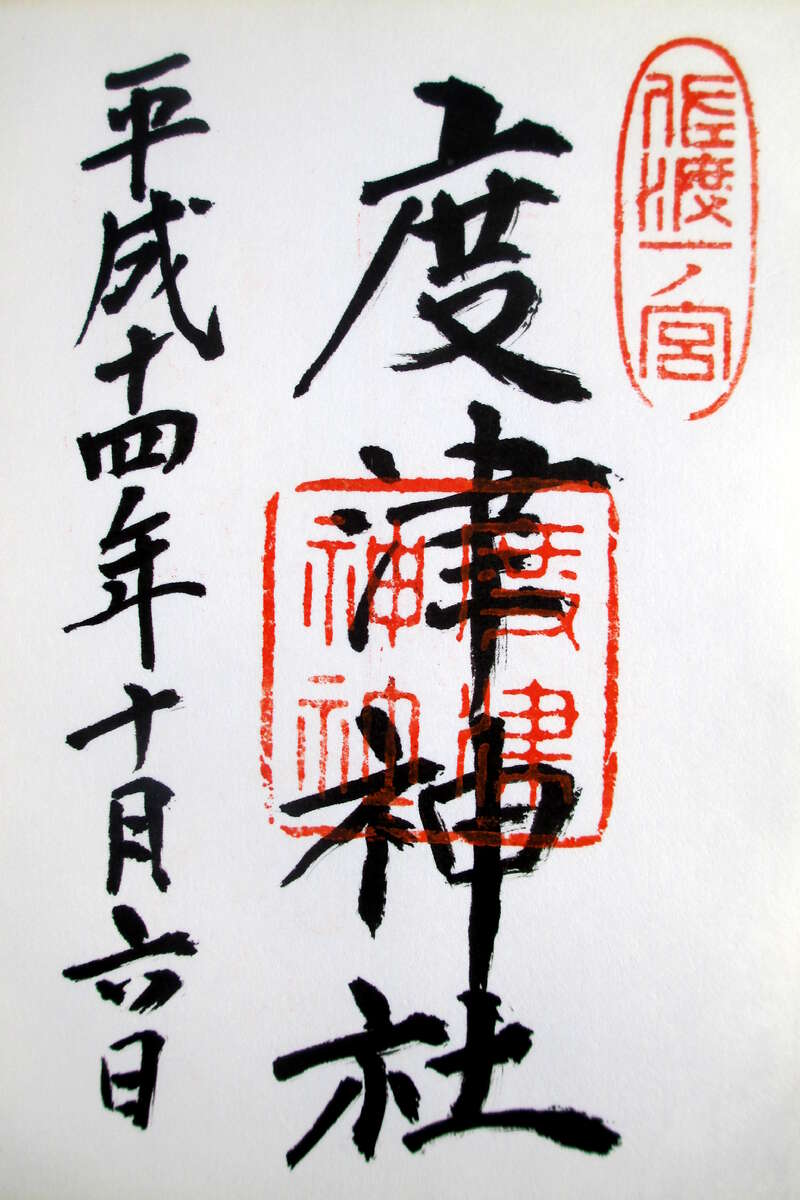 佐渡一ノ宮
度津神社
度津
神社
平成十四年十月六日